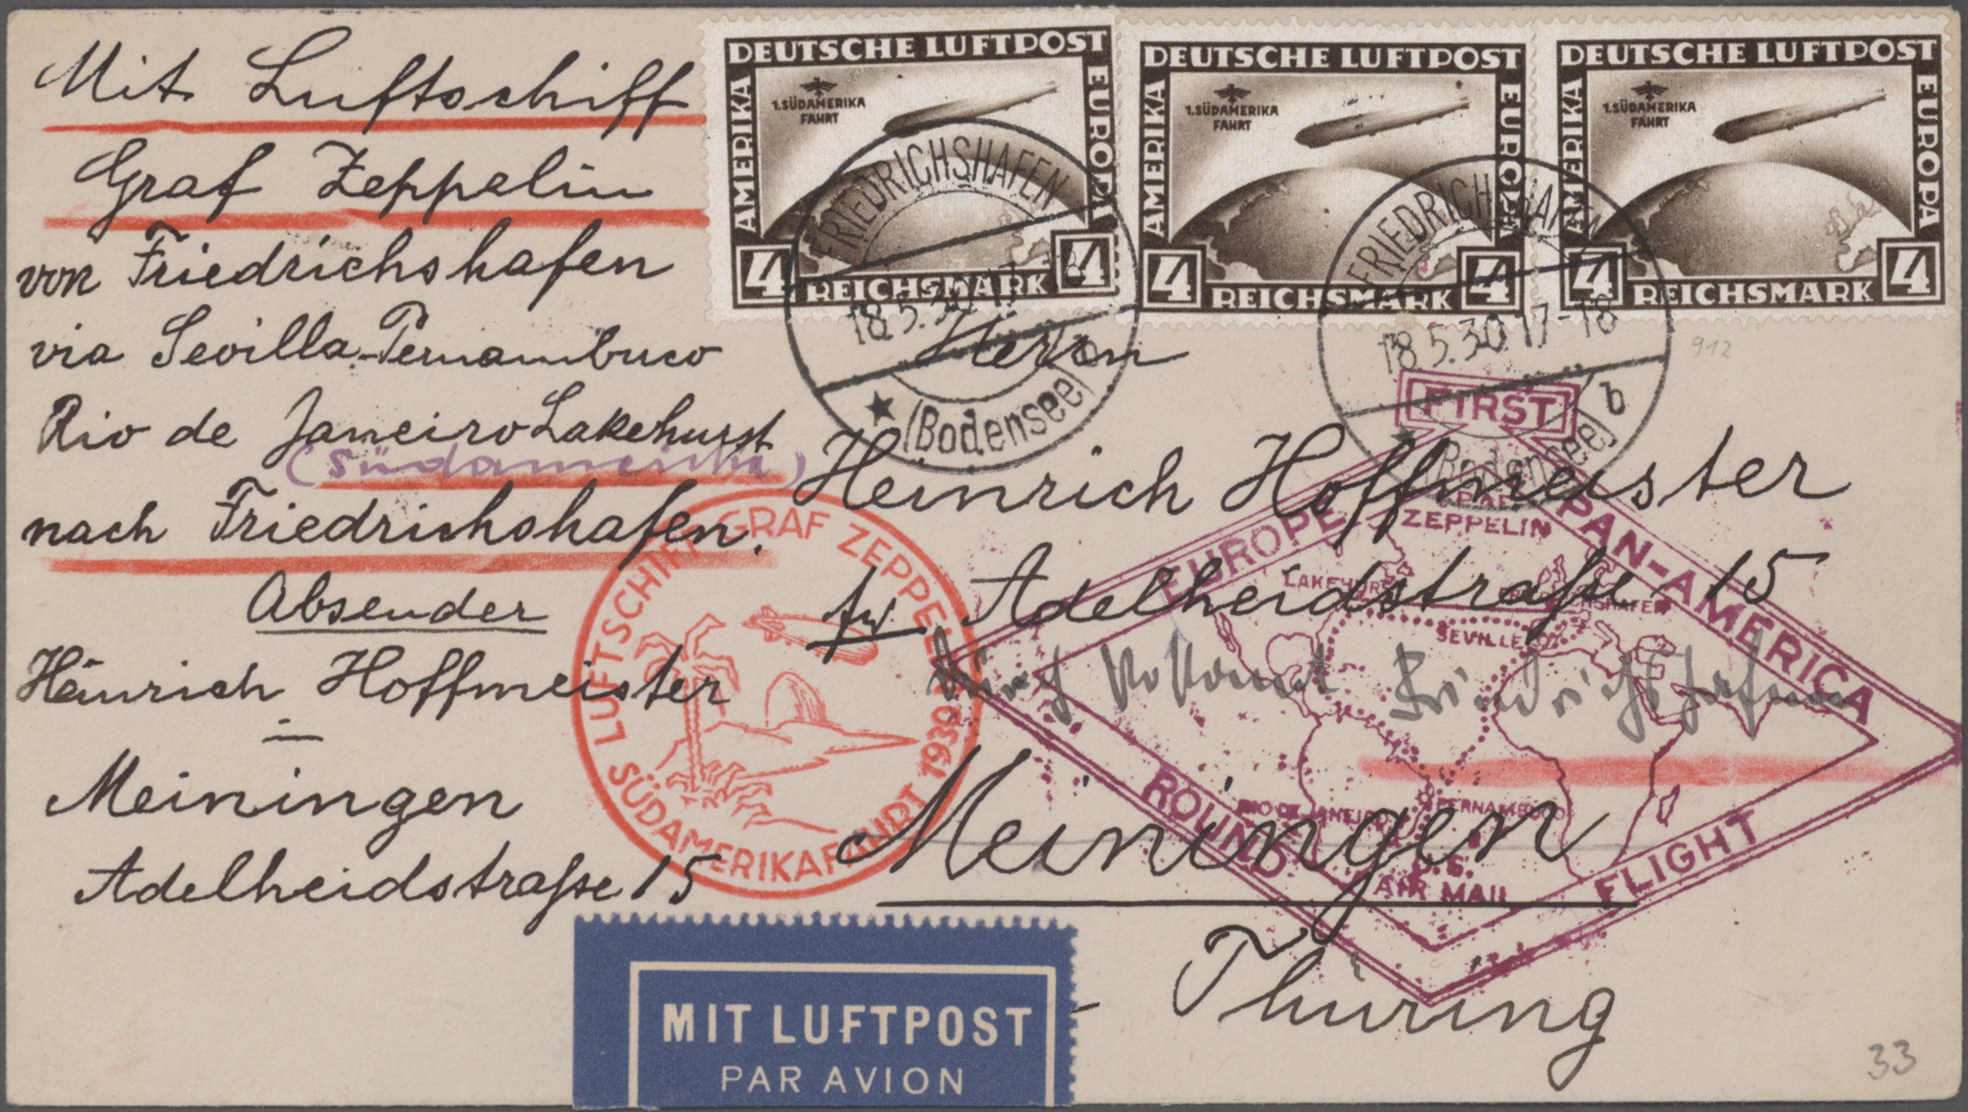 Mit Luftschiff
Graf Zeppelin
von Friedrichshafen
via Sevilla-Pernambuco
Rio de Janeiro Lakehurst
(Südamerika)
nach Friedrichshafen.
Absender
Heinrich Hoffmeister
Meiningen
Adelheidstraße 15
DEUTSCHE LUFTPOST
AMERIKA
EUROPA
1.SÜDAMERIKA
FAHRT
4 REICHSMARK 4
DEUTSCHE LUFTPOST
AMERIKA
EUROPA
1.SÜDAMERIKA
FAHRT
4 REICHSMARK 4
DEUTSCHE LUFTPOST
AMERIKA
EUROPA
1.SÜDAMERIKA
FAHRT
4 REICHSMARK 4
FRIEDRICHSHAFEN
18.5.30.17-18
(Bodensee) b
FRIEDRICHSHAFEN
18.5.30.17-18
(Bodensee) b
912
Herrn
Heinrich Hoffmeister
Adelheidstraße 15
Friedrichshafen
Meiningen
Thüring
LUFTSCHIFF GRAF ZEPPELIN
SÜDAMERIKAFAHRT 1930
FIRST
EUROPE
PAN-AMERICA
ROUND
FLIGHT
ZEPPELIN
LAKEHURST
FRIEDRICHSHAFEN
SEVILLE
RIO DE JANEIRO
PERNAMBUCO
U.S.
AIR MAIL
MIT LUFTPOST
PAR AVION
33